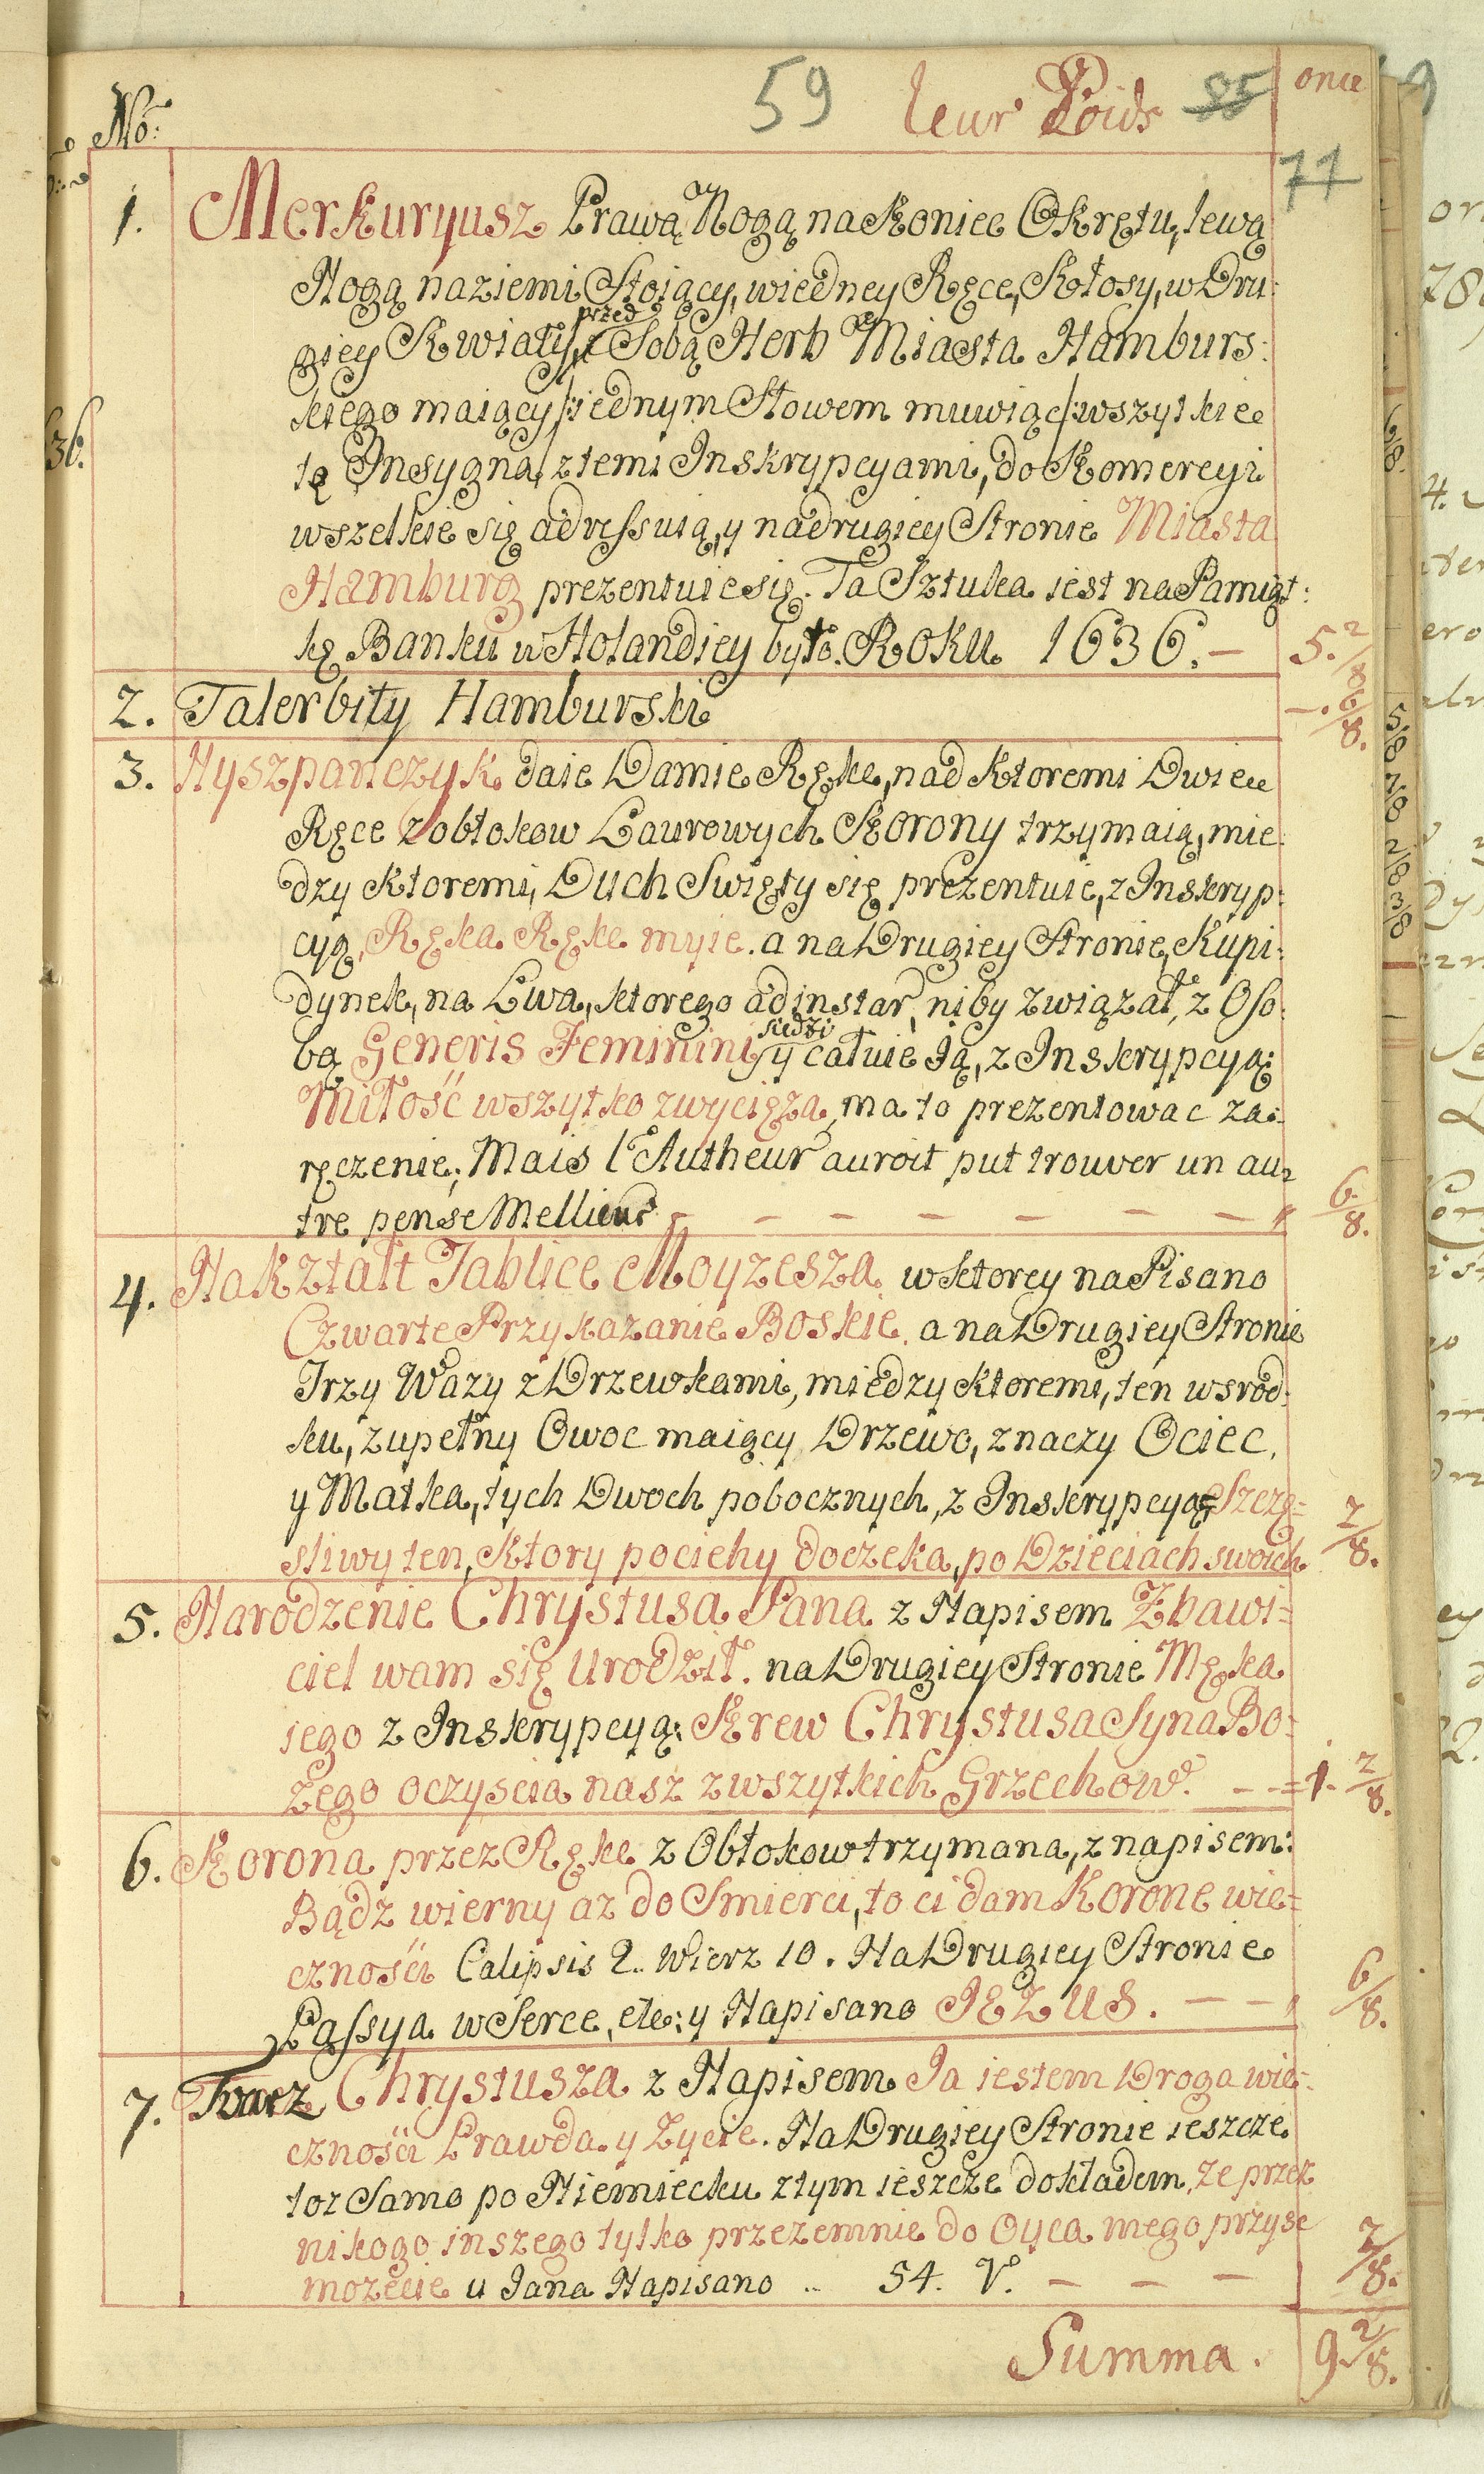 No:
59 leur Poids 85 once
77
1. Merkuryusz Prawą Nogą na Koniec Okrętu, lewą
Nogą na ziemi Stoiący, wiedney Ręce, Kłosy, w Dru:
giey Kwiaty, przed Sobą Herb Miasta Hamburs:
kiego maiący/:iednym Słowem muwiąc/:wszytkie
tę Insygna/ztemi Inskrypcyami, do Komercyi
wszelkie się adressuią, y nadrugiey Stronie Miasta
Hamburg prezentuie się. Ta Sztuka iest na Pamiąt:
kę Banku w Holandiey było. Roku 1636. – 5. 2/8
2. Taler bity Hamburski –. 6/8.
3. Hyszpanczyk daie Damie Rękę, nad Ktoremi Dwie
Ręce z obłokow Laurowych Korony trzymaią, mie:
dzy Ktoremi, Duch Swięty się prezentuie, z Inskryp:
cyą, Ręka Rękę myie. a na Drugiey Stronie, Kupi:
dynek, na Lwa, ktorego ad instar, niby związał, z Oso:
bą Generis Feminini siedzi y całuie Ją, z Inskrypcyą:
Miłość wszytko zwycięża, ma to prezentowac za:
ręczenie; Mais l'Autheur auroit put trouver un au:
tre pense Mellieur – – – – – – – 6/8.
4. Nakształt Tablice Moyzesza, w ktorey na Pisano
Czwarte Przykazanie Boskie. a na Drugiey Stronie
Trzy Wazy z Drzewkami, między Ktoremi, ten wsrod:
ku, zupełny Owoc maiący Drzewo, znaczy Ociec,
y Matka, tych Dwoch pobocznych, z Inskrypcyą: Szczę=
sliwy ten, Ktory pociehy doczeka, po Dzieciach swoich. 7/8.
5. Narodzenie Chrystusa Pana z Napisem Zbawi=
ciel wam się urodził. na Drugiey Stronie Męka
iego z Inskrypcyą: Krew Chrystusa Syna Bo=
żego oczyscia nasz z wszytkich Grzechow. – –= 1. 2/8.
6. Korona przez Rękę z Obłokow trzymana, z napisem:
Bądz wierny az do Smierci, to ci dam Korone wie=
cznośći Calipsis 2. Wierz 10. Na Drugiey Stronie
Passya w Serce, etc: y Napisano JEZUS. – – 6/8.
7. Twarz Chrystusza z Napisem Ja iestem Droga wie=
cznośći Prawda y Zycie. Na Drugiey Stronie ieszcze
toz Samo po Niemiecku z tym ieszcze dokładem, ze przez
nikogo inszego tylko przezemnie do Oyca mego przysc
mozecie u Jana Napisano .. 54. V. – – – 7/8.
Summa. 9. 2/8.